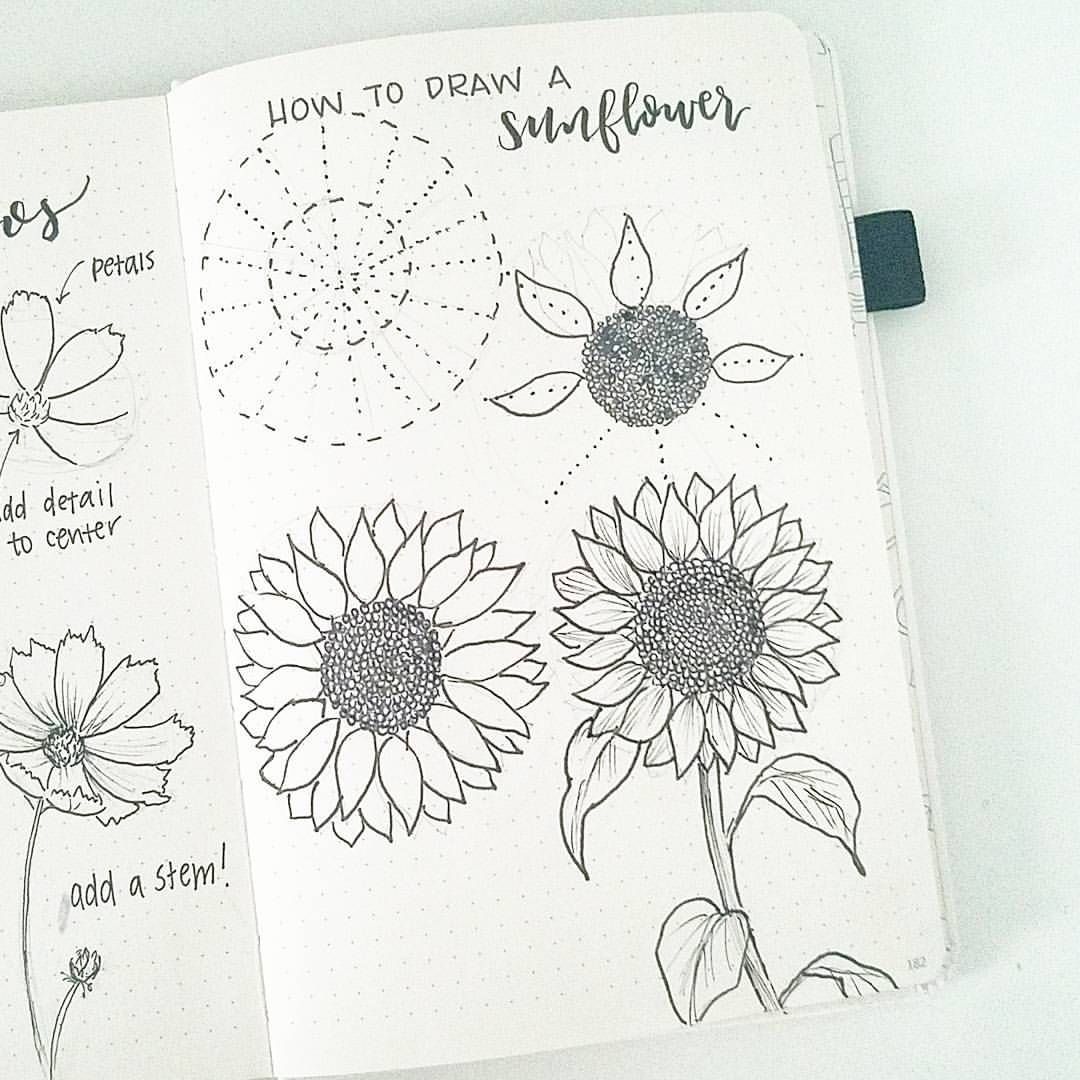 petals
to center
add a stem!
HOW TO DRAW A
sunflower
182